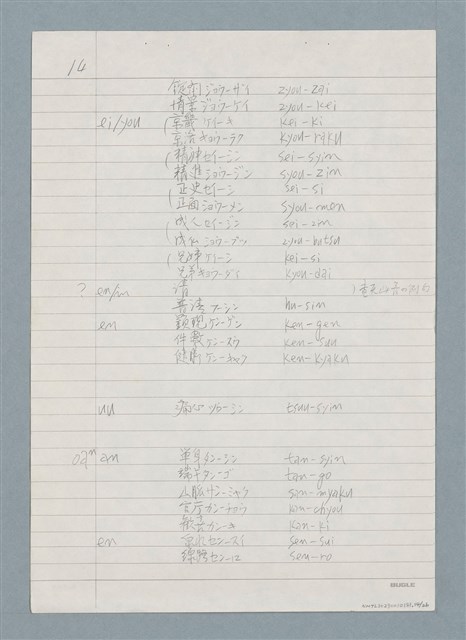 14
錠剤 ジョウーザイ zyou-zai
情景 ジョウーケイ zyou-kei
ei/you 京畿 ケイーキ kei-ki
京洛 キョウーラク kyou-raku
精神 セイーシン sei-syin
精進 ショウージン syou-zin
正史 セイーシ sei-si
正面 ショウーメン syou-men
成人 セイージン sei-zin
成仏 ジョウーブツ zyou-butsu
兄姉 ケイーシ kei-si
兄弟 キョウーダイ kyou-dai
? en/in 清
普請 フーシン hu-sin
en 顕現 ケンーゲン ken-gen
件数 ケンースウ ken-suu
健脚 ケンーキャク ken-kyaku
uu 痛心 ツウーシン tsuu-syin
an 単身 タンーシン tan-syin
端子 タンーゴ tan-go
山脈 サンーミャク san-myaku
官庁 カンーチョウ kan-chyou
歓喜 カンーキ kan-ki
en 泉水 センースイ sen-sui
線路 センーロ sen-ro